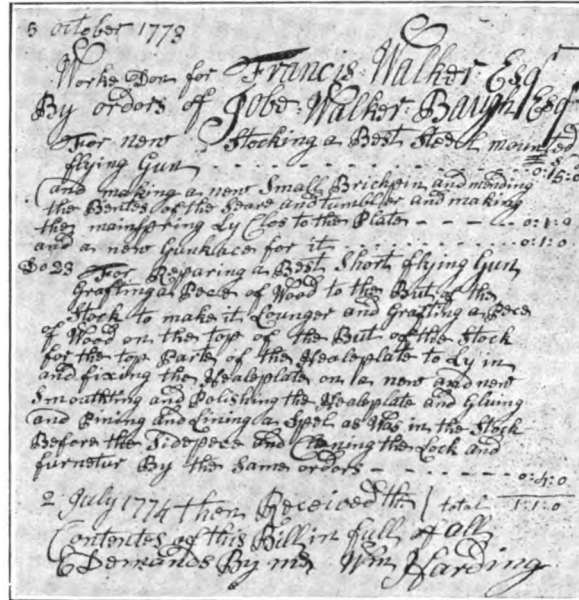 5 October 1773
Worke Don for Francis Walker Esqr
By ordors of Jobe Walker Baugh Esqr
For new Stocking a Best Steell mounted
flying Gun - - - - - - - - 0:15:0
and making a new Small Brickpin and mending
the Bentes of the Seare and tumbler and making
the mainspring Ly Clos to the Plate - - - - 0:1:0
and a new Gunlace for it - - - - - - - - 0:1:0
Do 23 For Reparing a Best Short flying Gun
Grafting a Pece of Wood to the But of the
Stock to make it Lounger and Grafting a Pece
of Wood on the top of the But of the Stock
for the top Parte of the Healeplate to Ly in
and fixing the Healeplate on a new and new
Smouthting and Polishing the Healeplate and Gluing
and Pining and Lining a Spel as Was in the Stock
Before the Sidepece and Clening the Lock and
furnetur By the Same ordors - - - - - - - 0:4:0
2 July 1774 then Received the total 1:1:0
Contentes of this Bill in full of all
Demandes By me Wm Harding